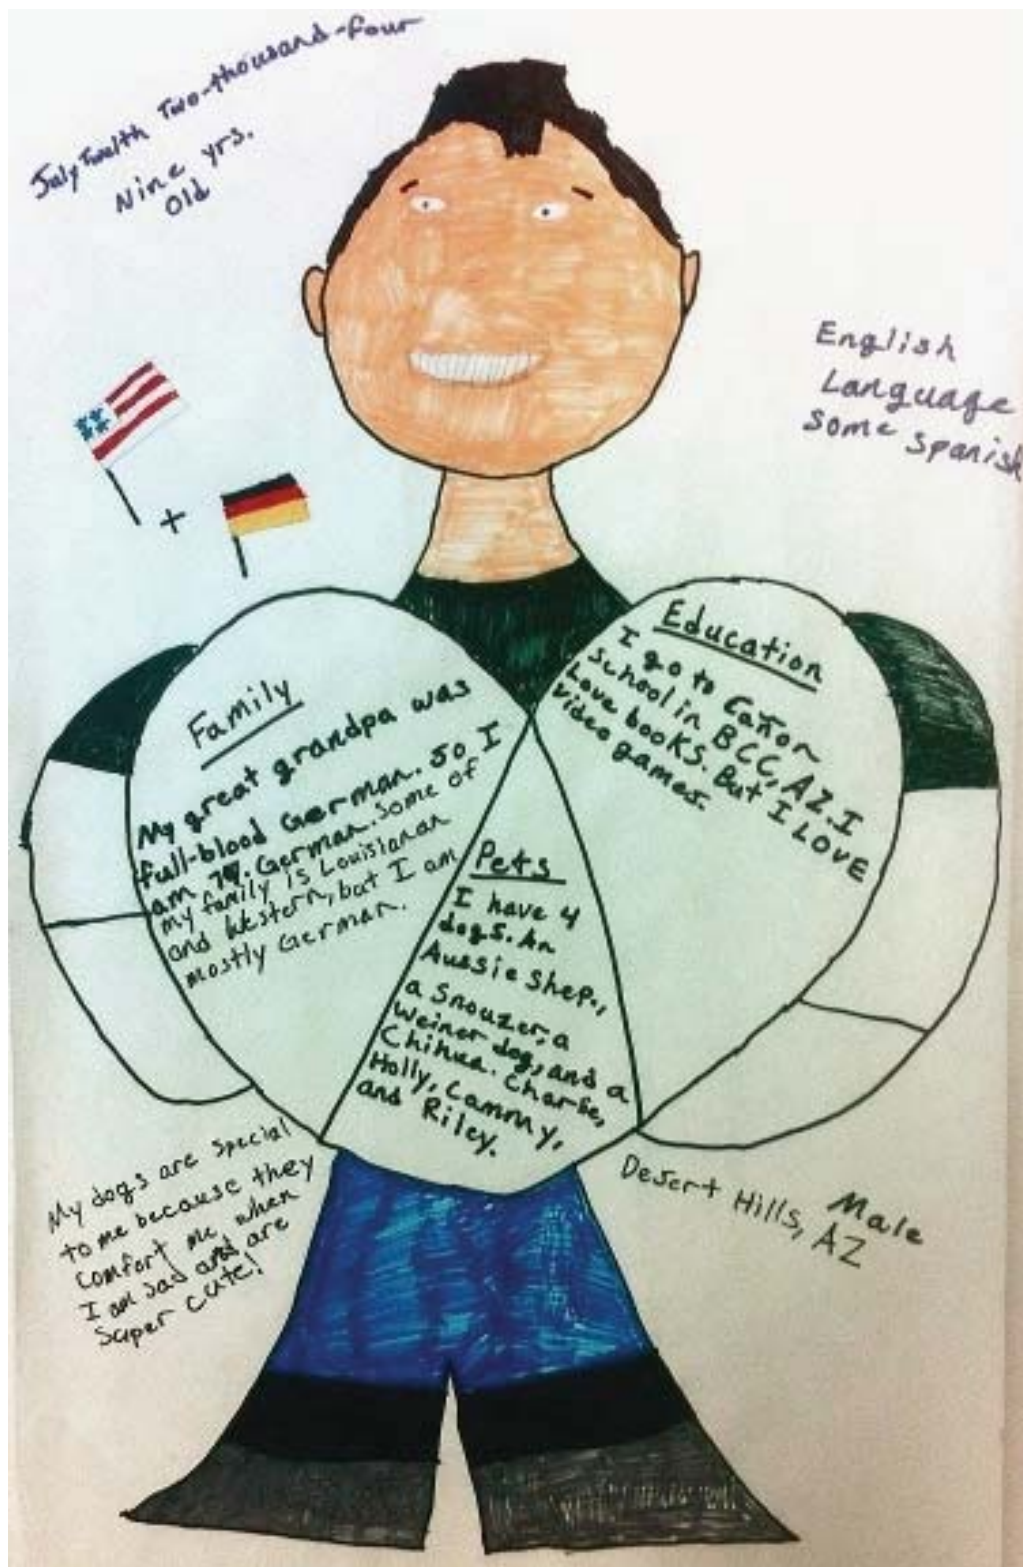 July Twelth Two-thousand-four
Nine yrs.
Old
English
Language
some Spanish
+
Family
My great grandpa was
full-blood German. So I
am German. Some of
my family is Louisianan
and Western, but I am
mostly German.
Education
I go to
school in BCC, AZ. I
Love books. But I LOVE
video games.
Pets
I have 4
dogs. An
Aussie Shep.,
a Snouzer, a
Weiner dog, and a
Chihua. Charlie,
Holly, Cammy,
and Riley.
My dogs are special
to me because they
comfort me when
I am sad and are
super cute!
Male
Desert Hills, AZ